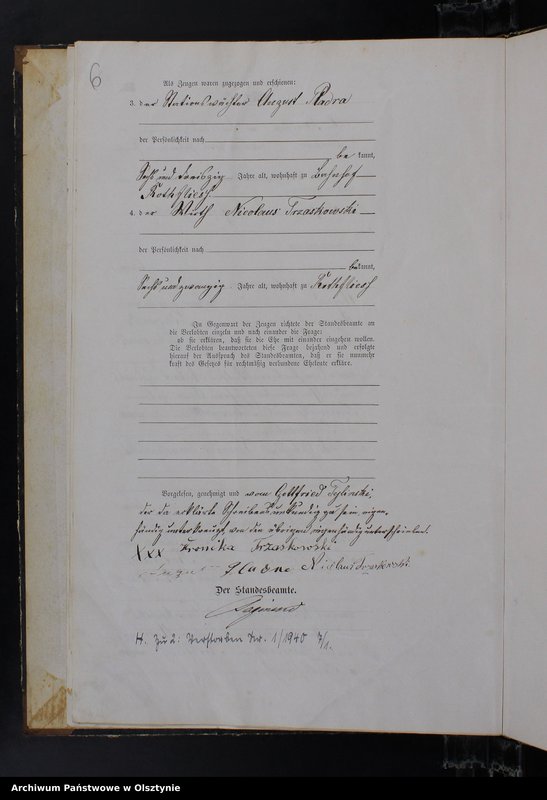 6
Als Zeugen waren zugezogen und erschienen:
3. der Stationswächter August
der Persönlichkeit nach
be kannt,
Sechs und dreißig Jahre alt, wohnhaft zu Bahnhof
Rothfliess
4. der Wirth Nicolaus Trzaskowski
der Persönlichkeit nach
bekannt,
Sechs und zwanzig Jahre alt, wohnhaft zu Rothfliess
In Gegenwart der Zeugen richtete der Standesbeamte an
die Verlobten einzeln und nach einander die Frage:
ob sie erklären, daß sie die Ehe mit einander eingehen wollen.
Die Verlobten beantworteten diese Frage bejahend und erfolgte
hierauf der Ausspruch des Standesbeamten, daß er sie nunmehr
kraft des Gesetzes für rechtmäßig verbundene Eheleute erkläre.
Vorgelesen, genehmigt und vom Gottfried
der da erklärte Schreibensunkundig zu sein eigen-
händig unterkreuzt von den übrigen eigenhändig unterschrieben.
XXX Trzaskowski
August Nicolaus Trzaskowski
Der Standesbeamte.
H. Zu 2: Verstorben Nr. 1/1940 7/1.
Archiwum Państwowe w Olsztynie